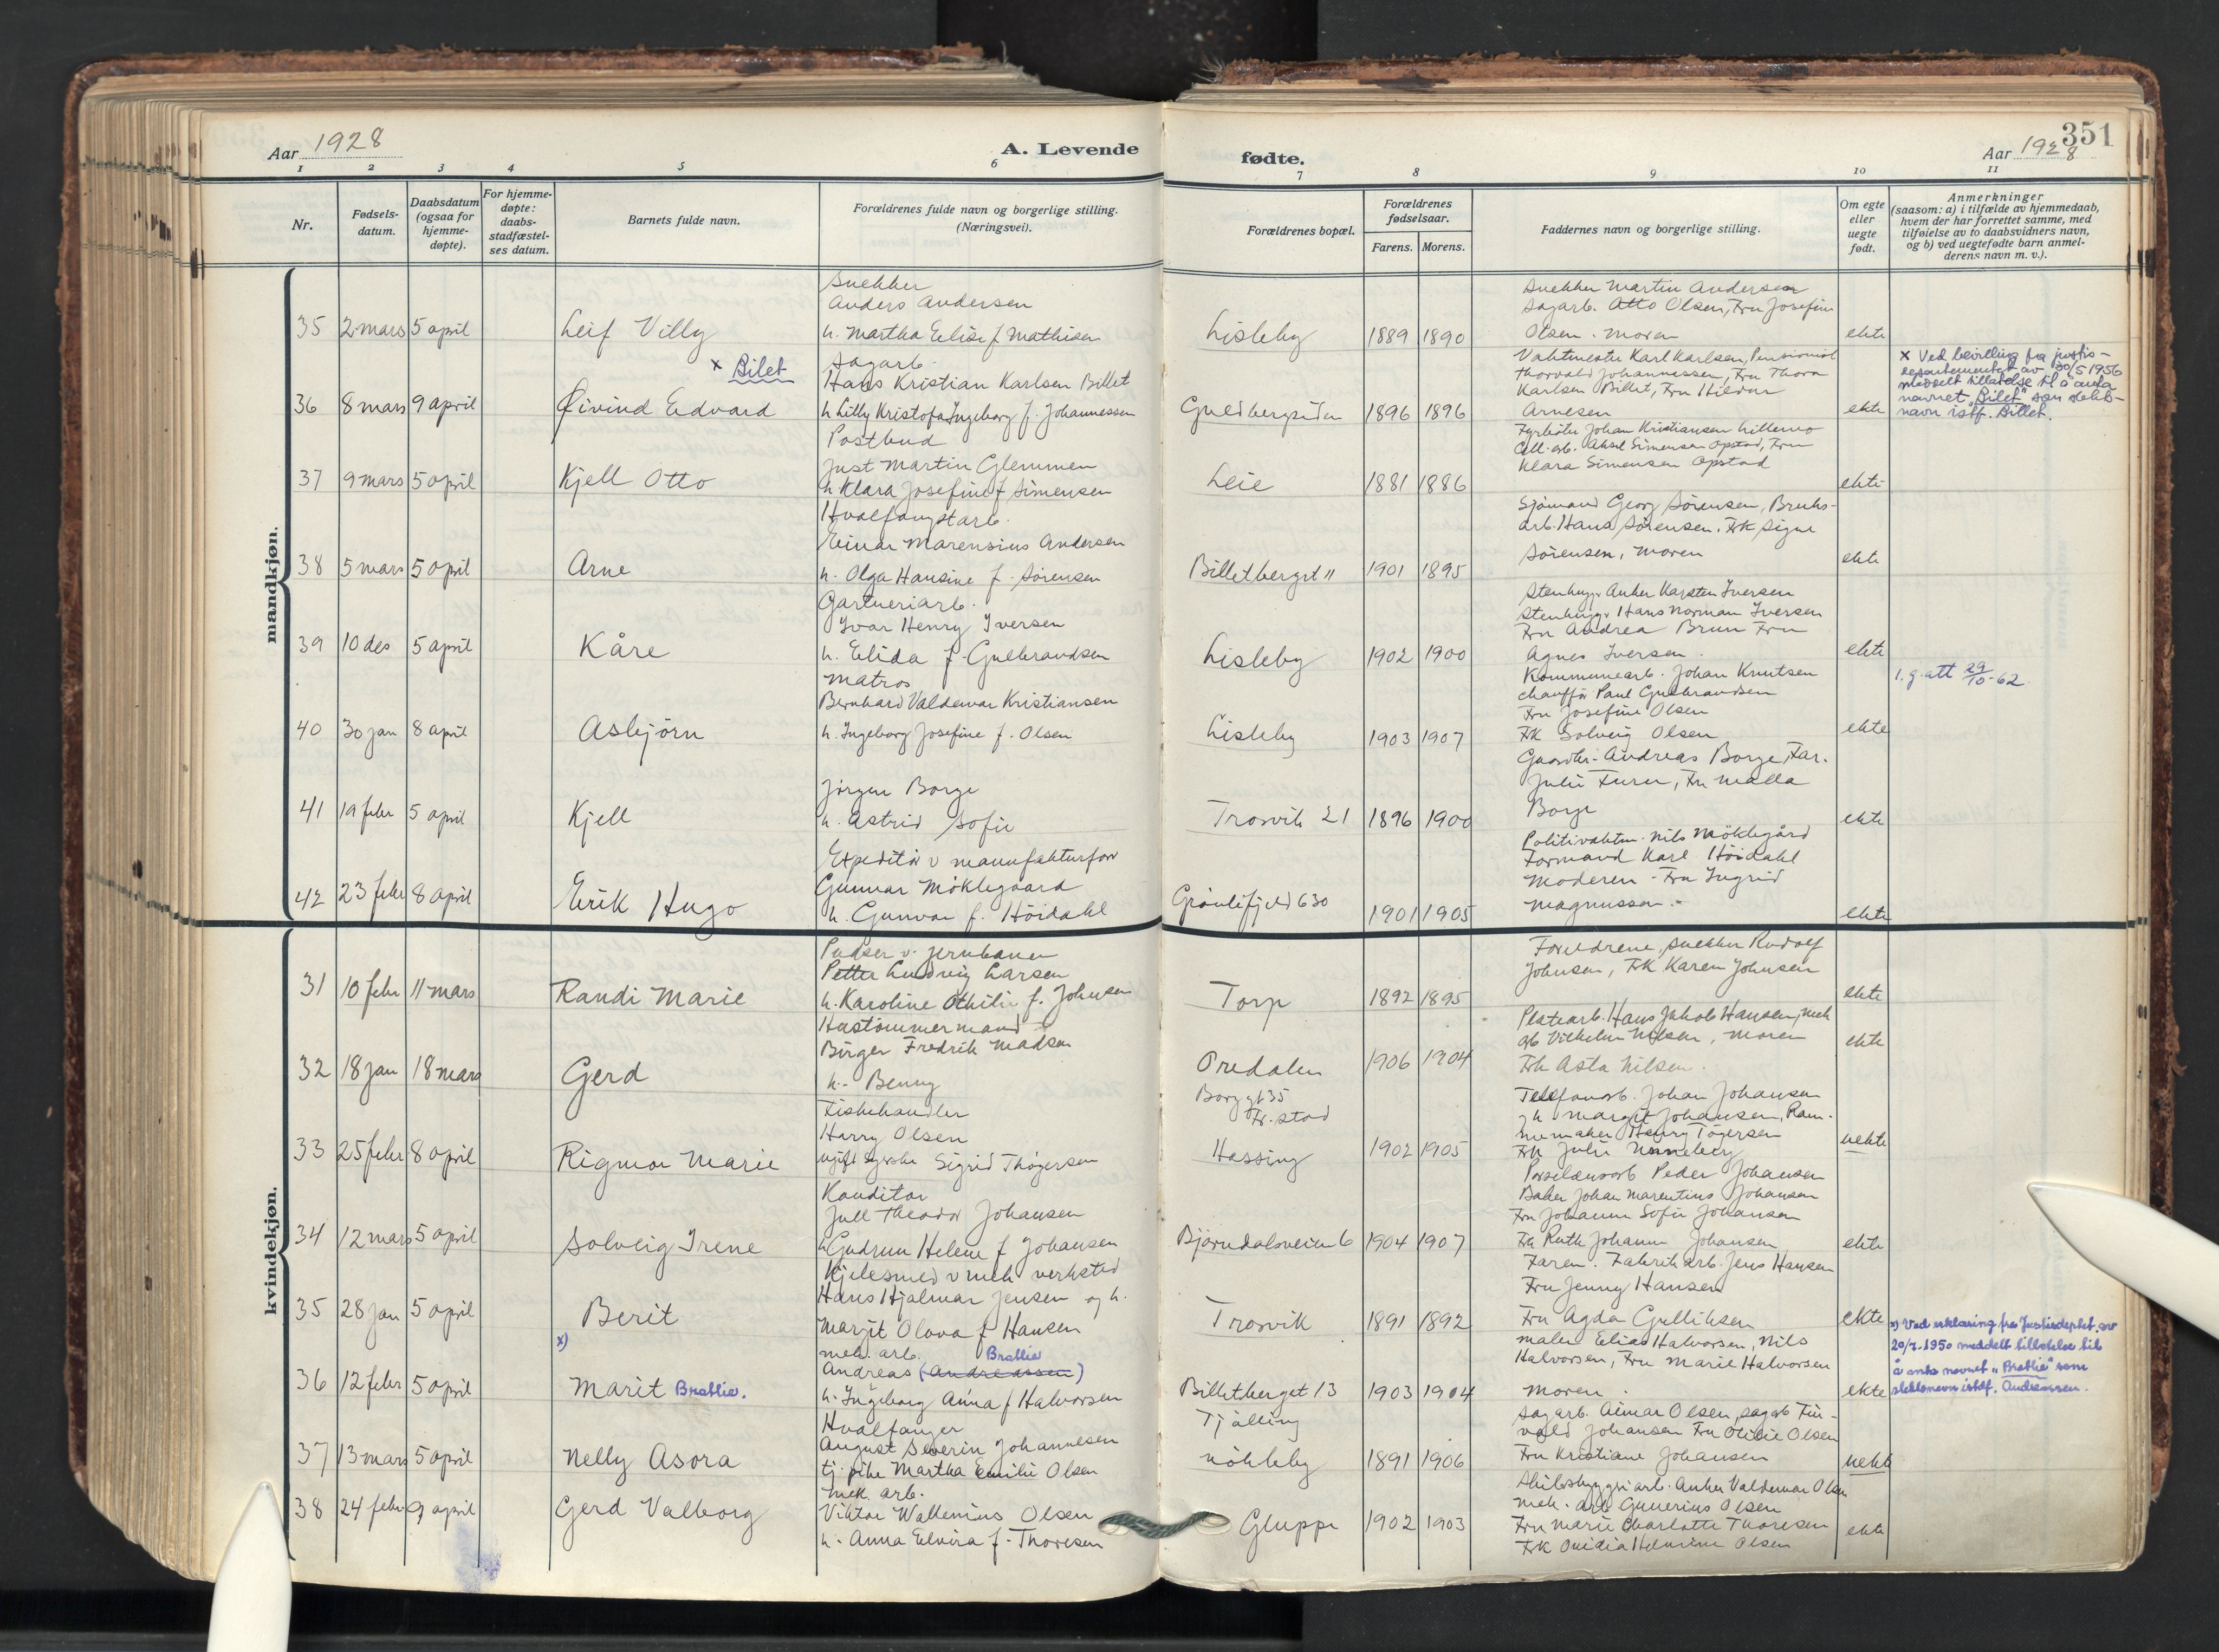 Aar 1928
A. Levende
fødte.
Aar 1928
351
1 2 3 4 5 6 7 8 9 10 11
Nr.
Fødsels-
datum.
Daabsdatum
(ogsaa for
hjemme-
døpte).
For hjemme-
døpte:
daabs-
stadfæstel-
ses datum.
Barnets fulde navn.
Forældrenes fulde navn og borgerlige stilling.
(Næringsvei).
Forældrenes bopæl.
Forældrenes
fødselsaar.
Farens. Morens.
Faddernes navn og borgerlige stilling.
Om egte
eller
uegte
født.
Anmerkninger
(saasom: a) i tilfælde av hjemmedaab,
hvem der har forrettet samme, med
tilføielse av to daabsvidners navn,
og b) ved uegtefødte barn anmel-
derens navn m. v.).
mandkjøn.
35 2 mars 5 april Leif Villy
Snekker
Anders Andersen
h. Martha Elise f Mathisen
Lisleby 1889 1890
Snekker Martin Andersen
Sagarb. Otto Olsen, Fru Josefine
Olsen. Moren
ekte
36 8 mars 9 april Øivind Edvard
x Bilet
Sagarb.
Hans Kristian Karlsen Billet
h Lilly Kristofa Ingeborg f. Johannessen
Guldbergsiden 1896 1896
Vaktmester Karl Karlsen, Pensionist
Thorvald Johannessen, Fru Thora
Karlsen Billet, Fru Hildur
Arnesen
ekte
x Ved bevilling fra justis-
departementet av 30/5 1956
meddelt tillatelse til å anta
navnet "Bilet" som slekts-
navn istf. Billet.
37 9 mars 5 april Kjell Otto
Postbud
Just Martin Glemmen
h Klara Josefine f Simensen
Leie 1881 1886
Fyrbøter Johan Kristiansen Lillemo
Cell. arb. Aksel Simensen Opstad, Fru
Klara Simensen Opstad
ekte
38 5 mars 5 april Arne
Hvalfangstarb.
Einar Marensius Andersen
h. Olga Hansine f. Sørensen
Billetberget 11 1901 1895
Sjømand Georg Sørensen, Bruks-
arb. Hans Sørensen. Frk Signe
Sørensen, Moren
ekte
39 10 des 5 april Kåre
Gartneriarb.
Ivar Henry Iversen
h. Elida f. Gulbrandsen
Lisleby 1902 1900
Stenhugg. Anker Karsten Iversen
Stenhugg. Hans Norman Iversen
Fru Andrea Brun Fru
Agnes Iversen.
ekte
1. g. att 29/10-62
40 30 jan 8 april Asbjørn
Matros
Bernhard Valdemar Kristiansen
h. Ingeborg Josefine f. Olsen
Lisleby 1903 1907
Kommunearb. Johan Knutsen
chauffør Paul Gulbrandsen
Fru Josefine Olsen
Frk Solveig Olsen
ekte
41 19 febr 5 april Kjell
Jørgen Borge
h. Astrid Sofie
Trosvik 21 1896 1900
Gaardbr. Andreas Borge, Far.
Julie Furu, Fru Malla
Borge
ekte
42 23 febr 8 april Erik Hugo
Expeditør v manufakturforr
Gunnar Møklegaard
h. Gunvor f. Höidahl
Grønlifjeld 630 1901 1905
Politivaktm. Nils Møklegård
Formand Karl Höidahl
Moderen - Fru Ingrid
Magnussen.-
ekte
kvindekjøn.
31 10 febr 11 mars Randi Marie
Pudser v. jernbanen
Petter Ludvig Larsen
h. Karoline Othilie f. Johnsen
Torp 1892 1895
Forældrene, snekker Rudolf
Johnsen, Frk Karen Johnsen
ekte
32 18 jan 18 mars Gerd
Hustømmermand
Birger Fredrik Madsen
h.- Benny
Oredalen 1906 1904
Platearb. Hans Jakob Hansen, mek
arb Vilhelm Nilsen, Moren
Frk Asta Nilsen.
ekte
33 25 febr 8 april Rigmor Marie
Fiskehandler
Harry Olsen
ugift syerske Sigrid Thøgersen
Borggt 35
Fr. stad
Hassing 1902 1905
Telefonarb. Johan Johansen
og h Margit Johansen, Ram-
memaker Henry Tøgersen
Frk Julie Unneberg
uekte
34 12 mars 5 april Solveig Irene
Konditor
Juell Theodor Johansen
h Gudrun Helene f Johansen
Bjørndalsveien 6 1904 1907
Porselænsarb Peder Johansen
Baker Johan Marentius Johansen
Fru Johanne Sofie Johansen
Frk Ruth Johanne Johansen
ekte
35 28 jan 5 april Berit
Kjelesmed v mek verksted
Hans Hjalmar Jensen og h.
Margit Olava f Hansen
Trosvik 1891 1892
Faren. Fabrikarb. Jens Hansen
Fru Jenny Hansen
Fru Agda Gulliksen
ekte
36 12 febr 5 april Marit Brattlie.
x)
mek. arb. Brattlie
Andreas (Andreassen)
h. Ingeborg Anna f Halvorsen
Billetberget 13 1903 1904
Maler Elias Halvorsen, Nils
Halvorsen, Fru Marie Halvorsen
Moren.
ekte
x) Ved erklæring fra Justisdeptet. av
20/7-1950 meddelt tillatelse til
å anta navnet "Brattlie" som
slektsnavn istdf. Andreassen.
37 13 mars 5 april Nelly Asora
Hvalfanger
August Severin Johannesen
tj. pike Martha Emilie Olsen
Tjølling
Nøkleby 1891 1906
Sagarb. Aimar Olsen, sagarb Fin-
vald Johansen Fru Otilie Olsen
Fru Kristiane Johansen
uekte
38 24 febr. 9 april Gerd Valborg
mek. arb.
Viktor Wallenius Olsen
h. Anna Elvira f. Thoresen
Gluppe 1902 1903
Skibsbyggeriarb. Anker Valdemar Olsen
mek. arb Gunerius Olsen
Fru Marie Charlotte Thoresen
Frk Ovidia Helmine Olsen
ekte